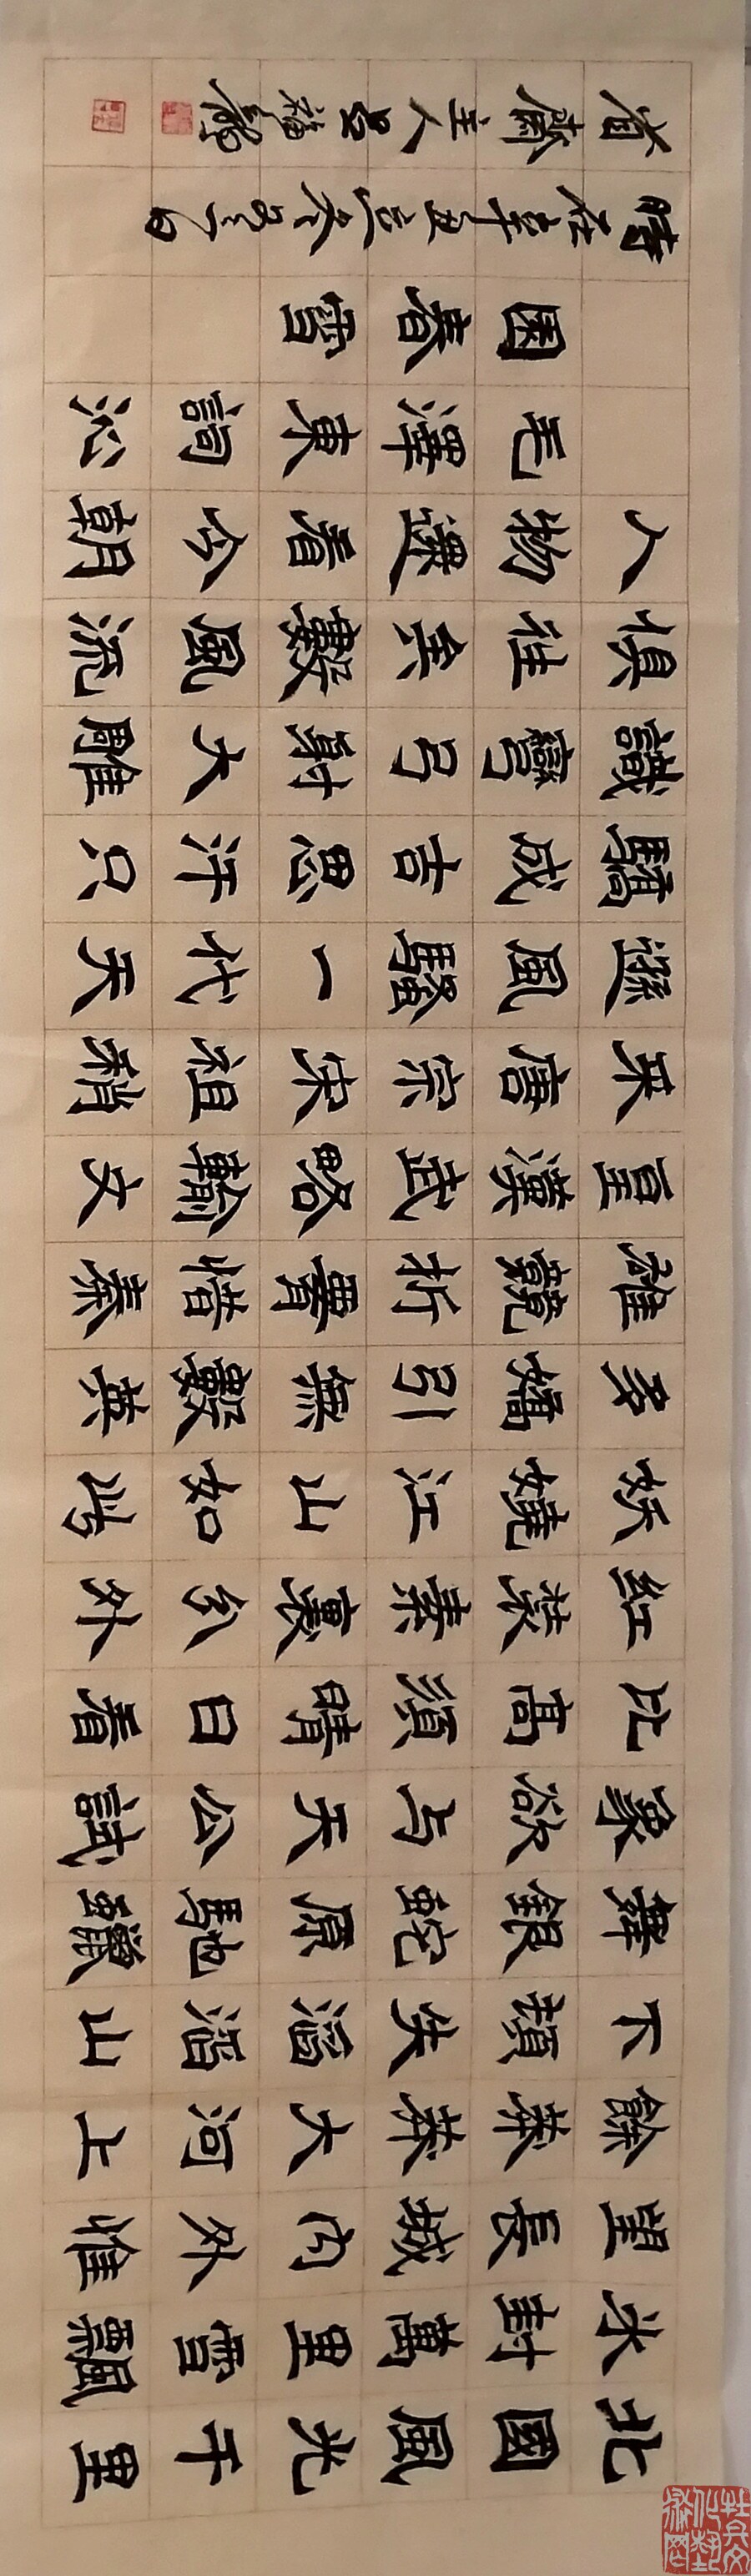 北國風光千里
冰封萬里雪飄
望長城内外惟
餘莽莽大河上
下頓失滔滔山
舞銀蛇原馳蠟
象欲与天公試
比高須晴日看
紅裝素裹分外
妖嬈江山如此
多嬌引無數英
雄競折腰惜秦
皇漢武略輸文
采唐宗宋祖稍
遜風騷一代天
驕成吉思汗只
識彎弓射大雕
俱往矣數風流
人物還看今朝
毛澤東詞沁
園春雪
時在辛丑
齋主人呂福